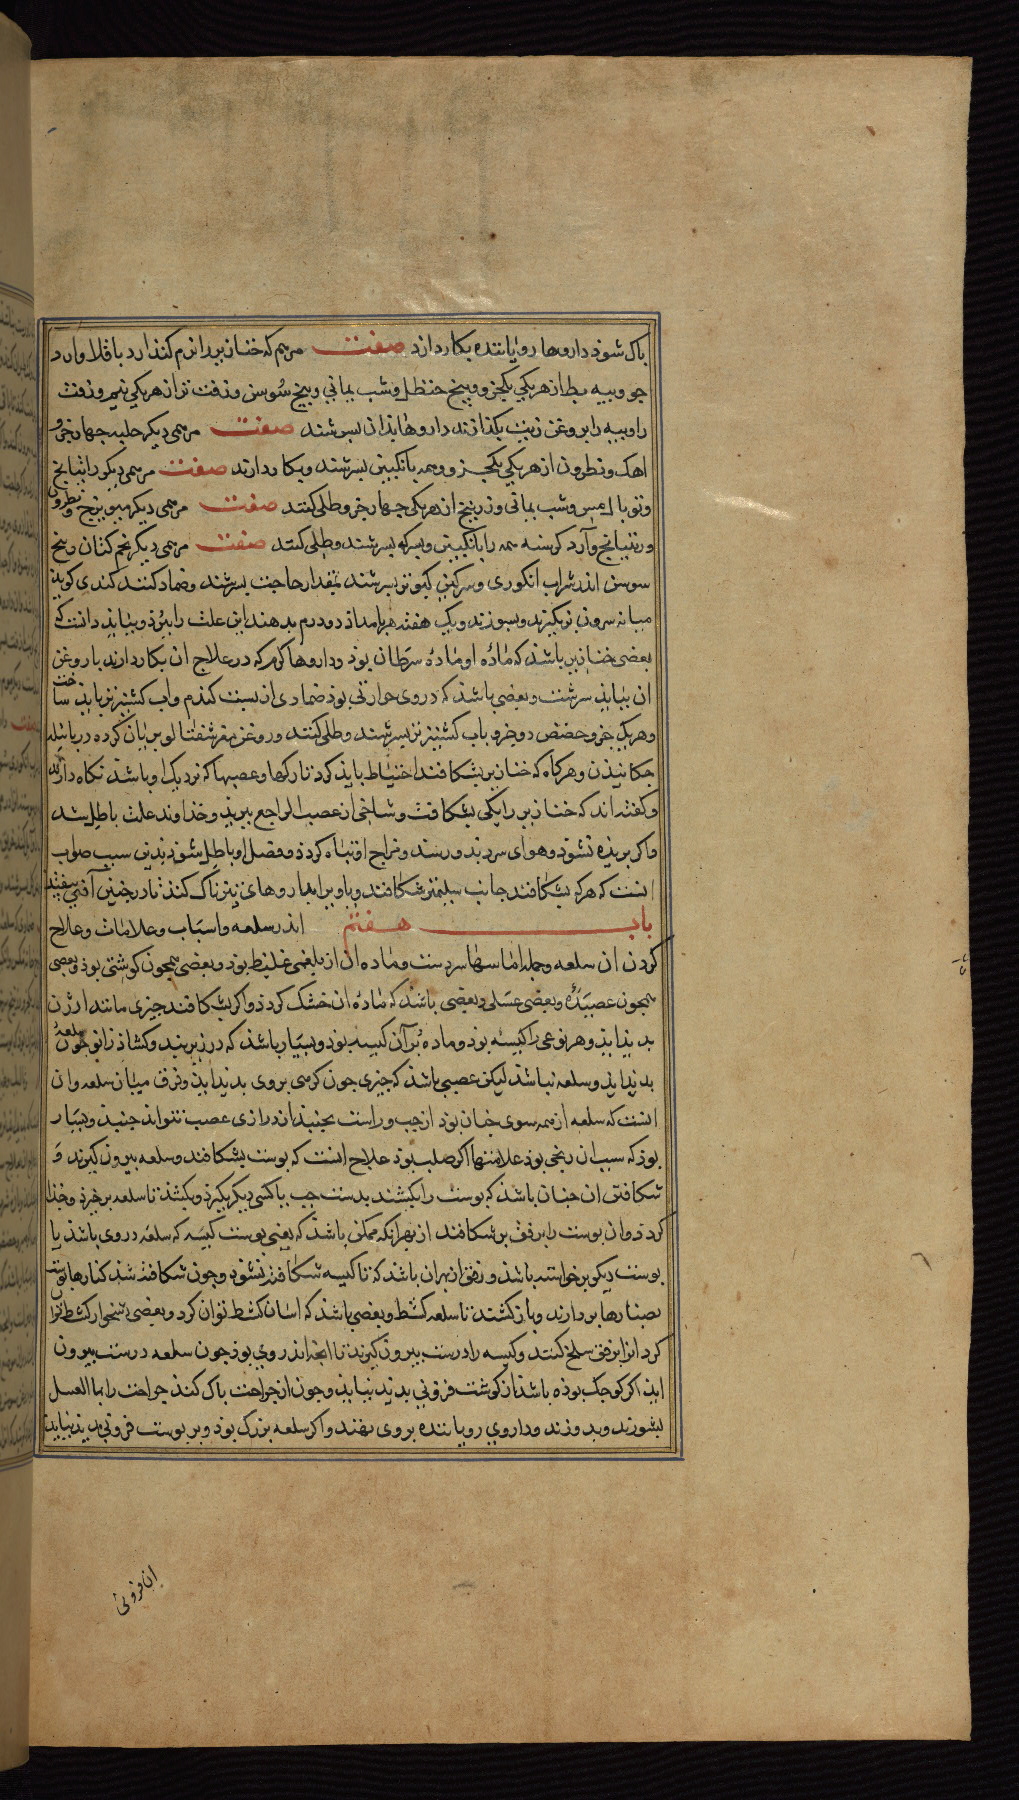 باک شوذ داروها رویاننده بکار دارند صفت مرهم که خنازیر را نرم کند آرد باقلا وارد
جو وبیه بط از هر یکی یکجزو وبیخ حنظل وشب یمانی وبیخ سوسن وزفت تر از هر یکی نیم وزفت
را وبیه را بروغن زیت بکدازند داروها بذان بسرشند صفت مرهمی دیکر حلبه جهار جزو
اهک ونطرون از هر یکی یکجزو وهمه بانکبین بسرشند وبکار دارند صفت مرهمی دیکر راتیانج
وتوبال مس وشب یمانی وزرنیخ از هر یکی جهار جزو وطلی کنند صفت مرهمی دیکر میویزج ونطرون
ورتیانج وآرد کرسنه همه را بانکبین وسرکه بسرشند وطلی کنند صفت مرهمی دیکر تخم کتان وبیخ
سوسن اندر شراب انکوری وسرکین کبوتر بسرشند بمقدار حاجت بسرشند وضماد کنند کندی کویذ
میانه سرون بز بکیرند وبسوزند ویک هفته هر بامداذ دو درم بدهند این علت را ببرذ وبباید دانست که
بعضی خنازیر باشذ که ماده او ماده سرطان بوذ وداروهای کرم که در علاج ان بکار دارند با روغن
ان بباید سرشت وبعضی باشذ که در وی حرارتی بوذ ضمادی از بست کندم واب کشنیز تر باید ساخت
وهر یکی جزو حضض دو جزو باب کشنیز تر بسرشند وطلی کنند وروغن مغز شفتالو بریان کرده در بینی
جکانیدن وهرکاه که خنازیر بشکافند احتیاط باید کرد تا رکها وعصبها که نزدیک او باشذ نکاه دارند
وکفته اند که خنازیر را یکی بشکافت وشاخی از عصب الراجع ببرید وخداوند علت باطل شد
واکر بریده نشوذ وهوای سرد بذو رسد ومزاج او تباه کردذ وفعل او باطل شوذ بدین سبب صواب
انست که هرکه بشکافند جانب سلیمتر شکافند وباوبر ابداروهای تیزناک کنند تا در جنین آفتی نیفتد
باب هفتم اندر سلعه واسباب وعلامات وعلاج
کردن ان سلعه وجمله اماسها سردست وماده ان از بلغمی غلیظ بوذ وبعضی همجون کوشتی بوذ وبعضی
همجون عصیده وبعضی عسلی وبعضی باشذ که ماده ان خشک کردذ واکر بشکافند جیزی مانند ارزن
بدید اید وهر نوعی را کیسه بوذ وماده در آن کیسه بوذ وبسیار باشذ که در زیر بند وکشاد زانو جون سلعه
بدید اید وسلعه نباشذ لیکن عصبی باشذ که جیزی جون کرهی بروی بدید اید وفرق میان سلعه وان
انست که سلعه از همه سوی جنبان بوذ از جب وراست بجنبد از درازی عصب نتواند جنبید وبسیار
بوذ که سبب ان ریخی بوذ علامتها اکر صلب بوذ علاج انست که پوست بشکافند وسلعه بیرون کیرند و
شکافتن ان جنان باشذ که پوست را بکشند بدست جب یا کسی دیکر بکیرذ وبکشذ تا سلعه برخیزد وجذا
کردذ وان پوست را برفق برشکافند از بهر انکه ممکن باشذ که یعنی پوست کیسه که سلعه در وی باشذ با
پوست دیکر برخواسته باشذ ورفق از بهر ان باشذ که تا کیسه شکافته نشود وجون شکافته شذ کنارها پوست
بصنارها بردارند وباز کشند تا سلعه کشط وبعضی باشذ که اسان کشط توان کرد وبعضی دشخوار کشط توان
کرد انرا برفق سلخ کنند وکیسه را درست بیرون کیرند تا انجه اندر وی بوذ جون سلعه درست بیرون
اید اکر کوجک بوذه باشذ از کوشت فزونی بدید نیاید وجون از جراحت باک کنند جراحت را بما العسل
بشورند وبدوزند وداروی رویاننده بروی نهند واکر سلعه بزرک بوذ وبر پوست فزونی بدید بیاید
ان فزونی